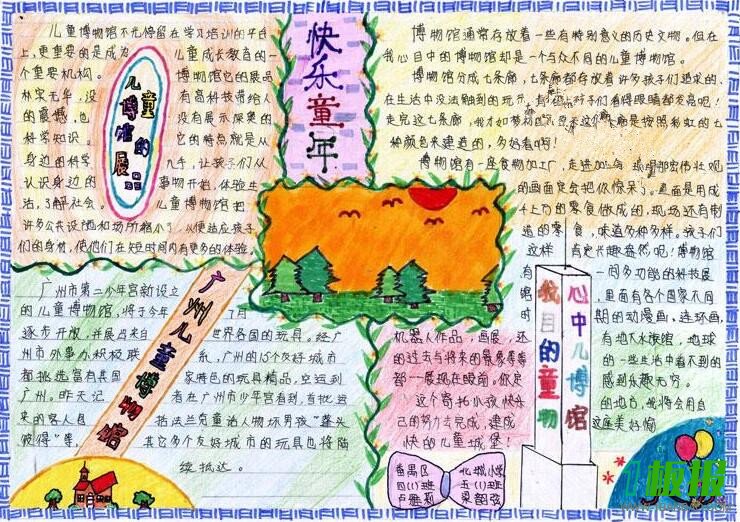 快乐童年
儿童博物馆的展品
儿童博物馆不光停留在学习培训的平台
上,更重要的是成为
儿童成长教育的一
个重要机构。
博物馆它的展品
林宋无华,没
有高科技带给人
的震撼,也
没有展示深奥的
科学知识。
它的特点就是从
身边的科学
九手,让孩子们从
认识身边的
事物开始,体验生
活,了解社会。
儿童博物馆把
许多公共设施和场所缩小了,从使适应孩子
们的身材,使他们在短时间内有更多的体验。
博物馆通常存放着一些有特别意义的历史文物。但在
我心目中的博物馆却是一个与众不同的儿童博物馆。
博物馆分成七条廊,七条廊都存放着许多孩子们追求的、
在生活中没法触到的玩
孩子们看得眼睛都发亮呢!
走完这七条廊,我才如梦初
这个廊是按照彩虹的七
种颜色来建造的,多好看啊!
博物馆有一座食物加工厂,走进加
那宏伟壮观
的画面定会把你惊呆了。里面是用成
千上万的零食做成的,现场还有制
造的零食,味道多种多样。孩子们
这样
肯定兴趣盎然呢!博物馆
一间多功能的科技展
馆
里面有各个国家不同
时
期的动漫画,连环画,
机器人作品,画展,还
有地下水族馆,地球
的过去与将来的景象等等
的一些生活中看不到的
都一展现在眼前,你足
感到乐趣无穷。
这个寄托小孩快乐
的地方,我将会用自
己的努力去完成,建成
这座美好愉
快的儿童城堡!
心中儿博馆
我目的童物
广州儿童博物馆
广州市第二少年宫新设立
的儿童博物馆,将于今年
7月
逐步开放,并展出来自
世界各国的玩具。经广
州市外事办积极联
系,广州的15个友好城市
都挑选富有其国
家特色的玩具精品,空运到
广州。昨天记
者在广州市少年宫看到,首批运
来的客人包
括法兰克童话人物坏男孩“蓬头
彼得”等,
其它多个友好城市的玩具也将陆
续抵达。
番禺区
北城小学
四(1)班
五(1)班
卢雅莉
梁韵弦
板报